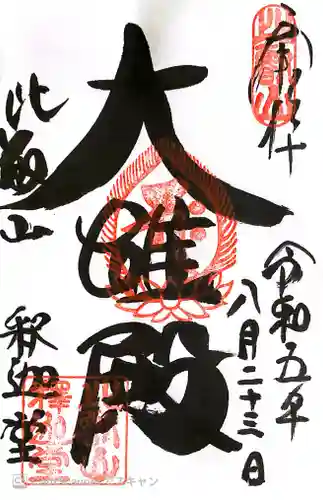 奉拝
令和五年
八月二十三日
大雄殿
比叡山
釈迦堂